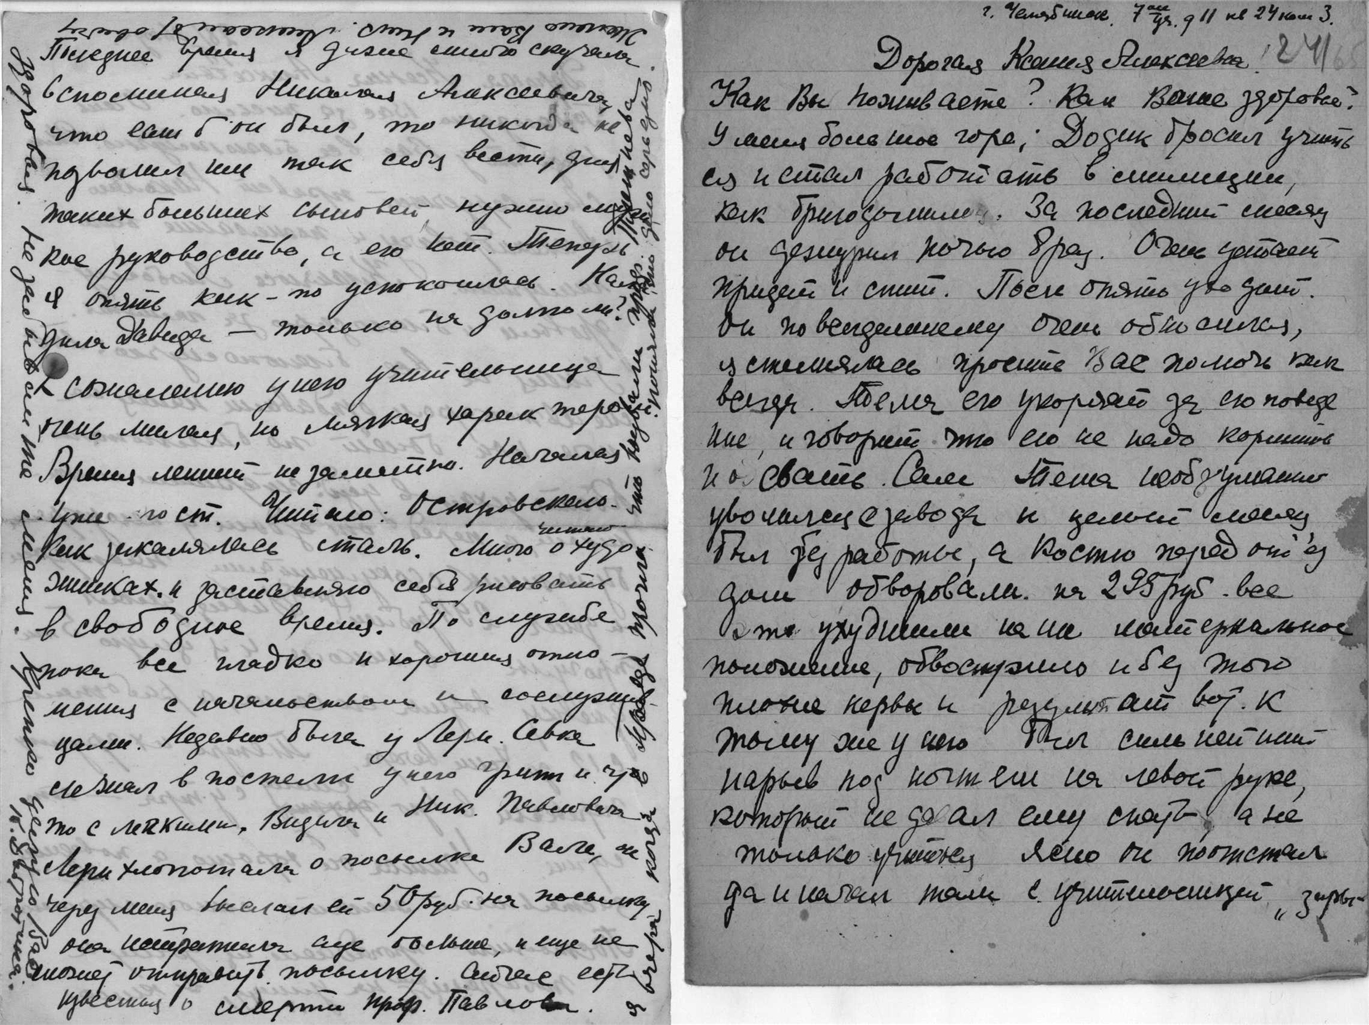 Последнее время я даже много скучала
вспоминая Николая Алексеевича,
что если б он был, то никогда не
позволил им так себя вести, для
таких больших сыновей нужно
кое руководство, а его нет. Теперь
я опять как-то успокоилась.
Давида — только на долго ли?
К сожалению у него учительница
очень милая, но мягкая характером
Время летит незаметно. Начался
уже пост. Читаю: Островского.
Как закалялась сталь. Много читаю о худо
жниках. и заставляю себя рисовать
в свободное время. По службе
пока все гладко и хорошия отно-
шения с начальством и сослужив
цами. Недавно была у Лери. Севка
лежал в постели у него грипп и что
то с легкими. Видела и Ник. Павловича
Лери хлопотала о посылке Вале, он
через меня выслал ей 50 руб. на посылку
она истратила еще больше, и еще не
может отправить посылку. Сейчас есть
известия о смерти проф. Павлова.
я вчера когда в Правде прочла что
здоровая. Не забывайте меня. Крепко целую Вас
г. Челябинск. 7 уч. д 11 кв 24 ком 3.
Дорогая Ксения Алексеевна!
24/
Как Вы поживаете? Как Ваше здоровье?
У меня большое горе; Додик бросил учить
ся и стал работать в милиции,
как бригадмилец. За последний месяц
он дежурил ночью 8 раз. Очень устает
придет и спит. После опять уходит.
он по всегдашнему очень обносился,
я стеснялась просить Вас помочь как
всегда. Тема его укоряет за его поведе
ние, и говорит что его не надо кормить
Сам Тема необдуманно
уволился с завода и целый месяц
был без работы, а Костю перед отъез
дом обворовали. на 295 руб. все
это ухудшили наше материальное
положение, обвострило и без того
плохие нервы и результат вот. К
тому же у него был сильнейший
нарыв под ногтем на левой руке,
который не давал ему спать, а не
только учиться Ясно он поотстал
да и начал там с учительницей